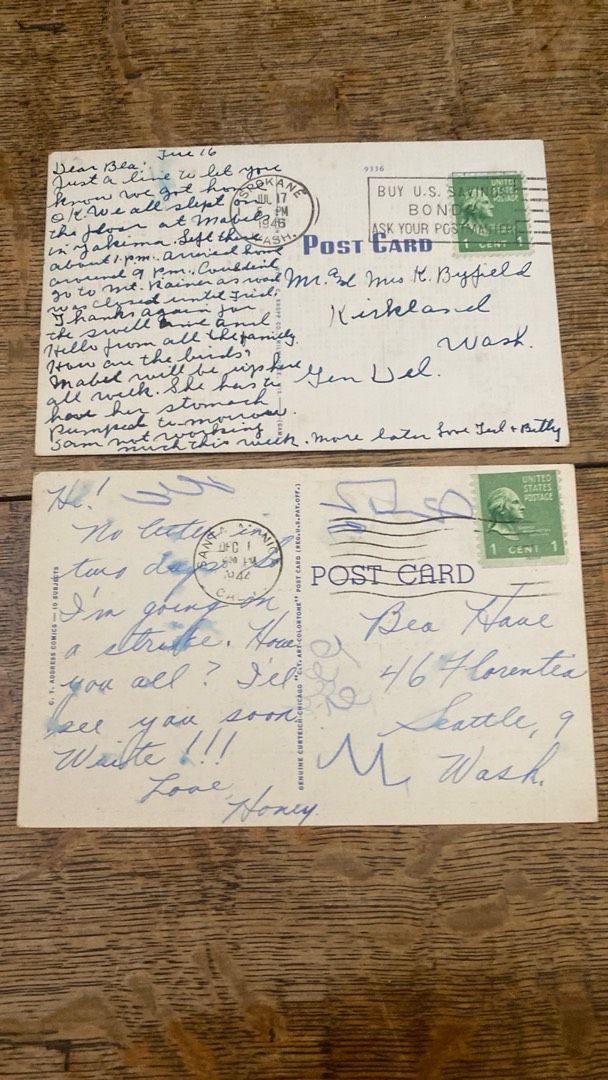 Dear Bea: Tue 16
Just a line to let you
know we got home
O.K. We all slept on
the floor at Mabel's
in Yakima. Left there
about 1 p.m. arrived home
around 9 p.m. Couldn't
go to Mt. Rainer as road
was closed until Frid.
Thanks again for
the swell time and
Hello from all the family.
How are the birds?
Mabel will be up here
all week. She has to
have her stomach
pumped tomorrow.
Sam not working
much this week. More later Love Ted & Betty
9336
SPOKANE
JUL 17
PM
1946
WASH.
BUY U.S. SAVINGS
BONDS
ASK YOUR POSTMASTER
UNITED
STATES
POSTAGE
1 CENT 1
POST CARD
Mr. and Mrs K. Byfield
Kirkland
Wash.
Gen Del.
Hi!
No letter in
two days. So
I'm going on
a strike. How
you all? I'll
see you soon
Write !!!
Love
Honey
C. T. ADDRESS COMICS — 10 SUBJECTS
GENUINE CURTEICH-CHICAGO "C.T. ART-COLORTONE" POST CARD (REG. U.S. PAT. OFF.)
SANTA MONICA
DEC 1
PM
CALIF.
UNITED
STATES
POSTAGE
1 CENT 1
POST CARD
Bea
46 Florentia
Seattle, 9
Wash.